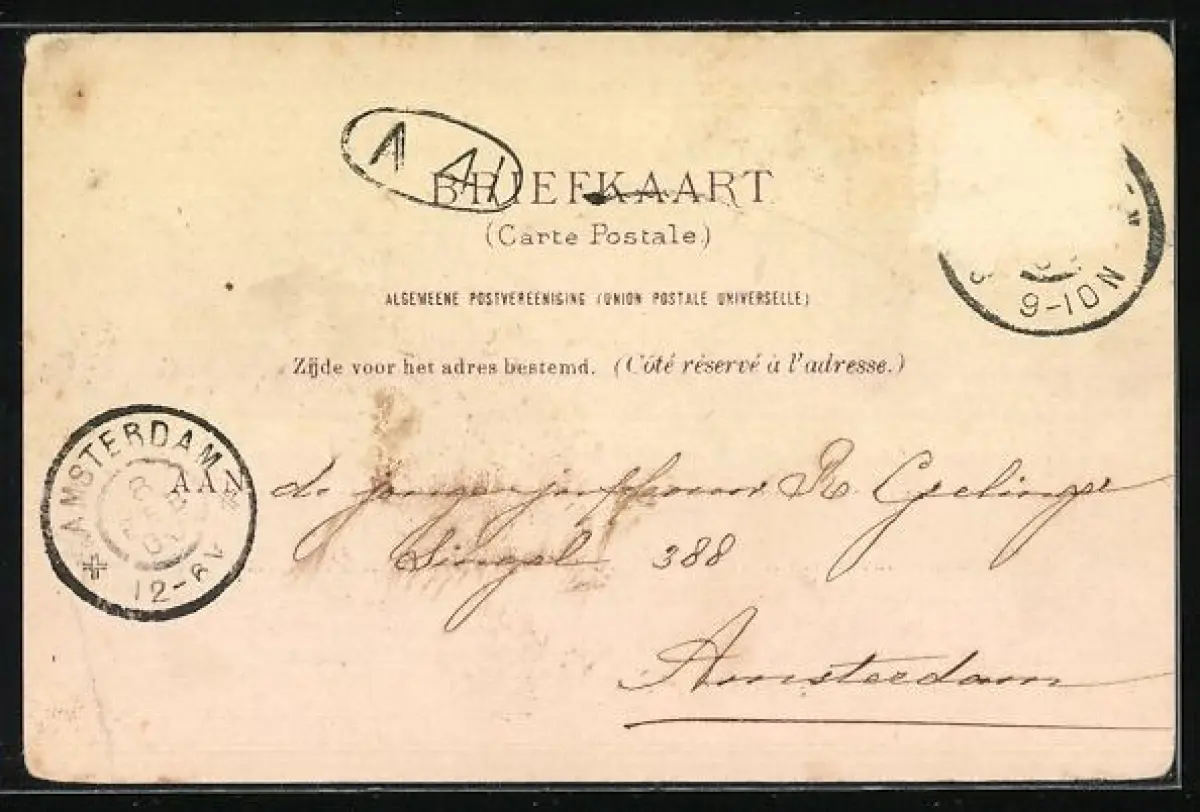 A 41
BRIEFKAART
(Carte Postale.)
9-10N
ALGEMEENE POSTVEREENIGING (UNION POSTALE UNIVERSELLE)
Zijde voor het adres bestemd. (Côté réservé à l'adresse.)
AMSTERDAM
8
SEP
12-6V
AAN
de R.
Singel 388
Amsterdam